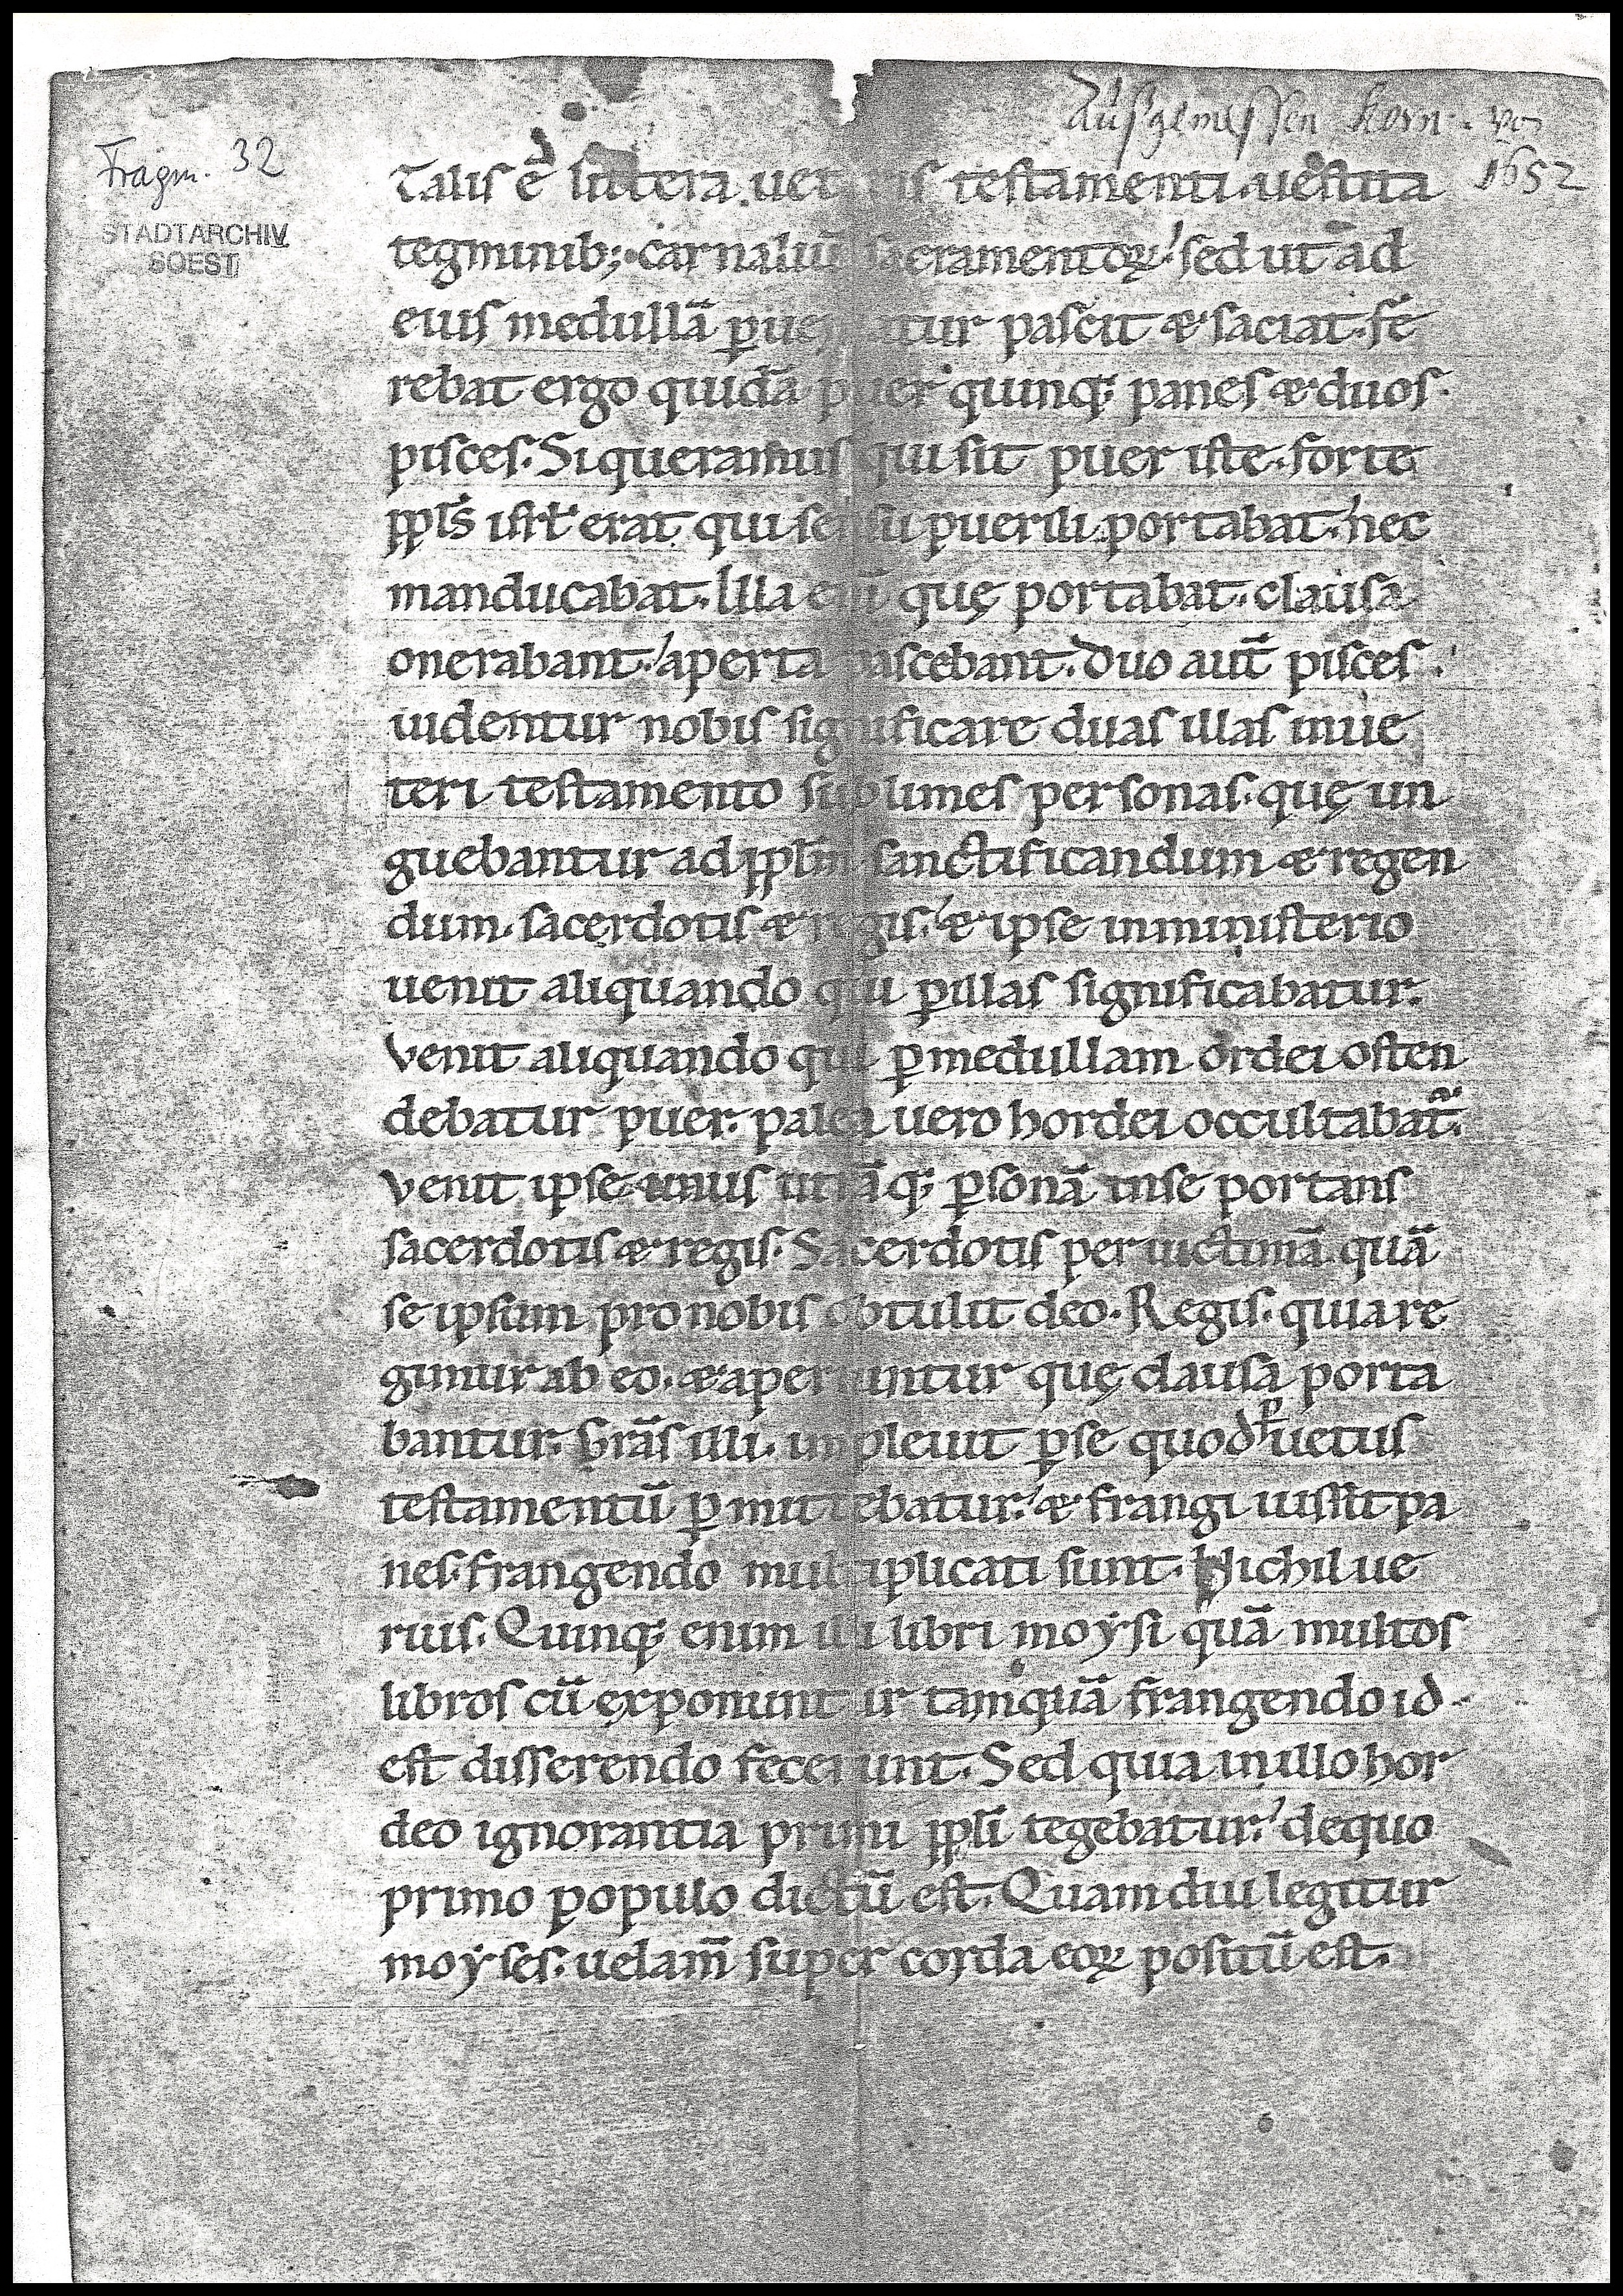 Ausgemessen Korn. vo
1652
Fragm. 32
STADTARCHIV
SOEST
Talis ē littera uet is testamenti. uestita
tegminib; carnaliū sacramentoꝝ. sed ut ad
eius medullā ꝑueniatur pascit & saciat. fe
rebat ergo quidā puer quinq; panes & duos
pisces. Si queramus qui sit puer iste. forte
ppl̄s isrl̄ erat qui sensu puerili portabat. nec
manducabat. Illa eni quę portabat. clausa
onerabant. aperta pascebant. Duo aut̄ pisces
uidentur nobis significare duas illas inue
teri testamento sublimes personas. quę un
guebantur ad ppl̄m sanctificandum & regen
dum. sacerdotis & regis. & ipse inministerio
uenit aliquando qui ꝑillas significabatur.
Venit aliquando qui ꝑ medullam ordei osten
debatur puer. palea uero hordei occultabat᷑.
venit ipse unus utrāq; ꝑsonā inse portans
sacerdotis & regis. Sacerdotis per uictimā quā
se ipsum pro nobis obtulit deo. Regis. quia re
gimur ab eo. & aperiuntur quę clausa porta
bantur. Grās illi. impleuit ꝑse quod ꝑ uetus
testamentū ꝑmittebatur. & frangi iussit pa
nes. frangendo multiplicati sunt. Nichil ue
rius. Quinq; enim illi libri moysi quā multos
libros cū exponuntur tamquā frangendo id
est disserendo fecerunt. Sed quia inillo hor
deo ignorantia primi ppl̄i tegebatur. dequo
primo populo dictū est. Quamdiu legitur
moyses. uelam̄ super corda eoꝝ positū est.